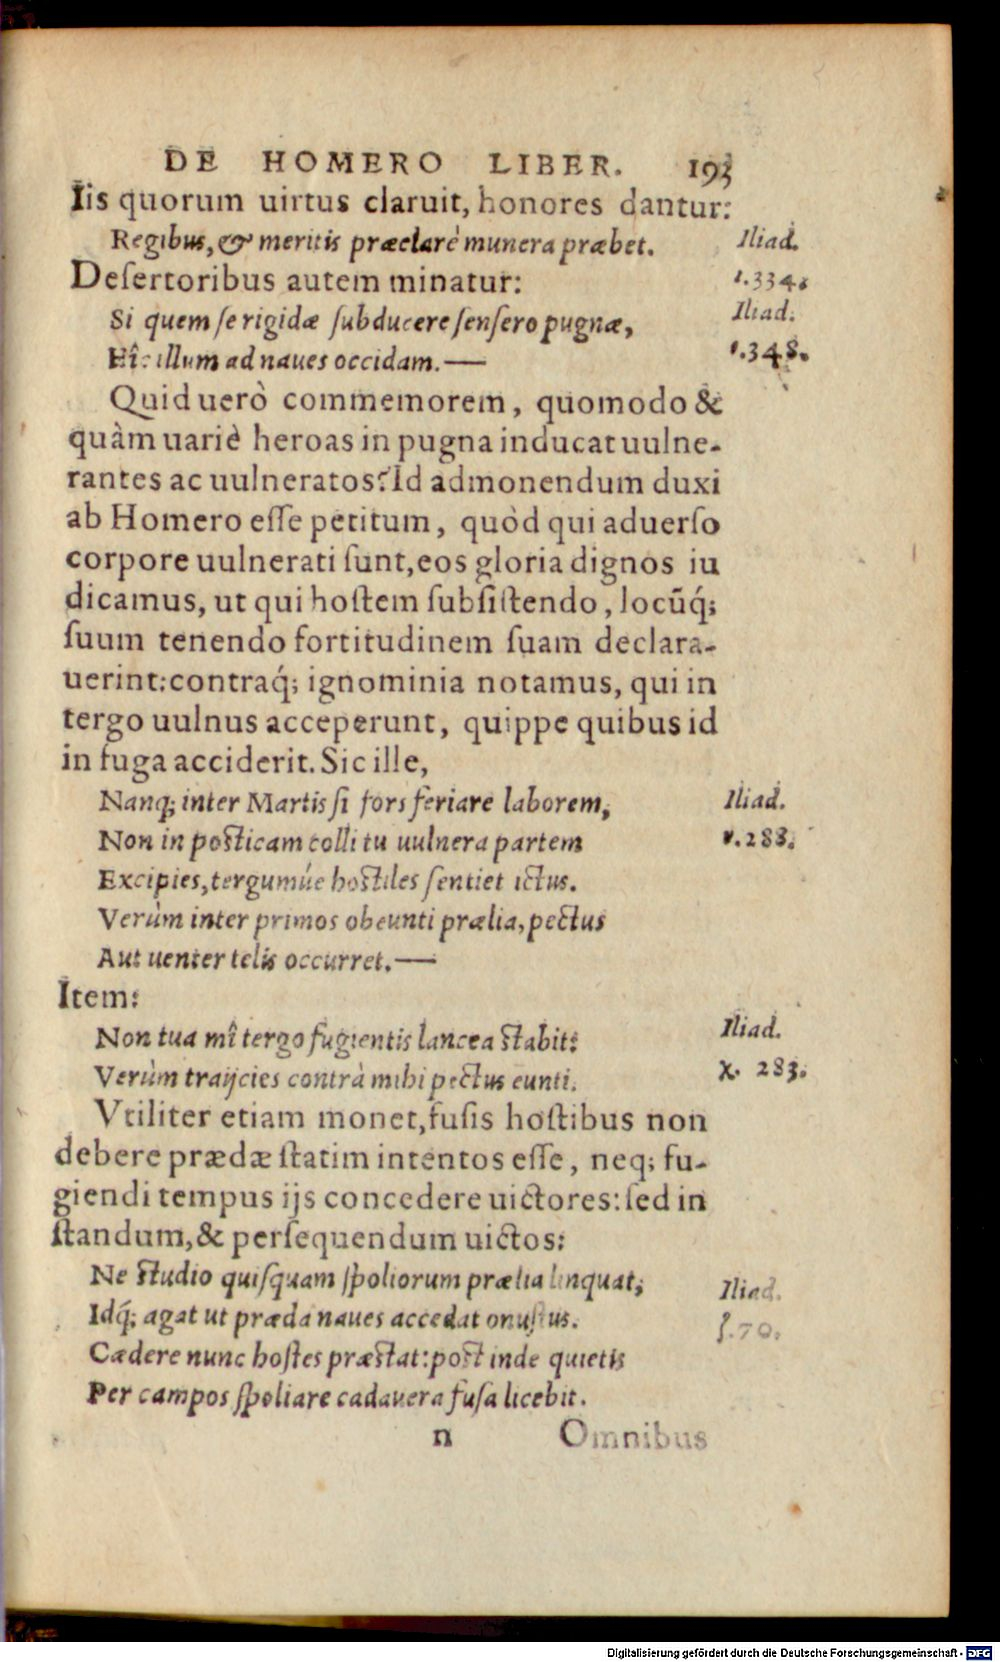 DE HOMERO LIBER. 193
Iis quorum uirtus claruit, honores dantur:
Regibus, & meritis præclarè munera præbet.
Iliad.
ι.334.
Deſertoribus autem minatur:
Si quem ſe rigidæ ſubducere ſenſero pugnæ,
Iliad.
illum ad naues occidam.—
.348.
Quid uerò commemorem, quomodo &
quàm uariè heroas in pugna inducat uulne-
rantes ac uulneratos? Id admonendum duxi
ab Homero eſſe petitum, quòd qui aduerſo
corpore uulnerati ſunt, eos gloria dignos iu
dicamus, ut qui hoſtem ſubſiſtendo, locũq́;
ſuum tenendo fortitudinem ſuam declara-
uerint: contraq́; ignominia notamus, qui in
tergo uulnus acceperunt, quippe quibus id
in fuga acciderit. Sic ille,
Nanq; inter Martis ſi fors feriare laborem,
Iliad.
Non in poſticam colli tu uulnera partem
ν.288.
Excipies, tergumúe hoſtiles ſentiet ictus.
Verùm inter primos obeunti prælia, pectus
Aut uenter telis occurret.—
Item:
Non tua mî tergo fugientis lancea ſtabit:
Iliad.
Verùm traijcies contrà mihi pectus eunti.
χ. 283.
Vtiliter etiam monet, fuſis hoſtibus non
debere prædæ ſtatim intentos eſſe, neq; fu-
giendi tempus ijs concedere uictores: ſed in
ſtandum, & perſequendum uictos:
Ne ſtudio quiſquam ſpoliorum prælia linquat,
Iliad.
Idq́; agat ut præda naues accedat onuſtus.
ζ.70.
Cædere nunc hoſtes præſtat: poſt inde quietis
Per campos ſpoliare cadauera fuſa licebit.
n Omnibus
Digitalisierung gefördert durch die Deutsche Forschungsgemeinschaft - DFG